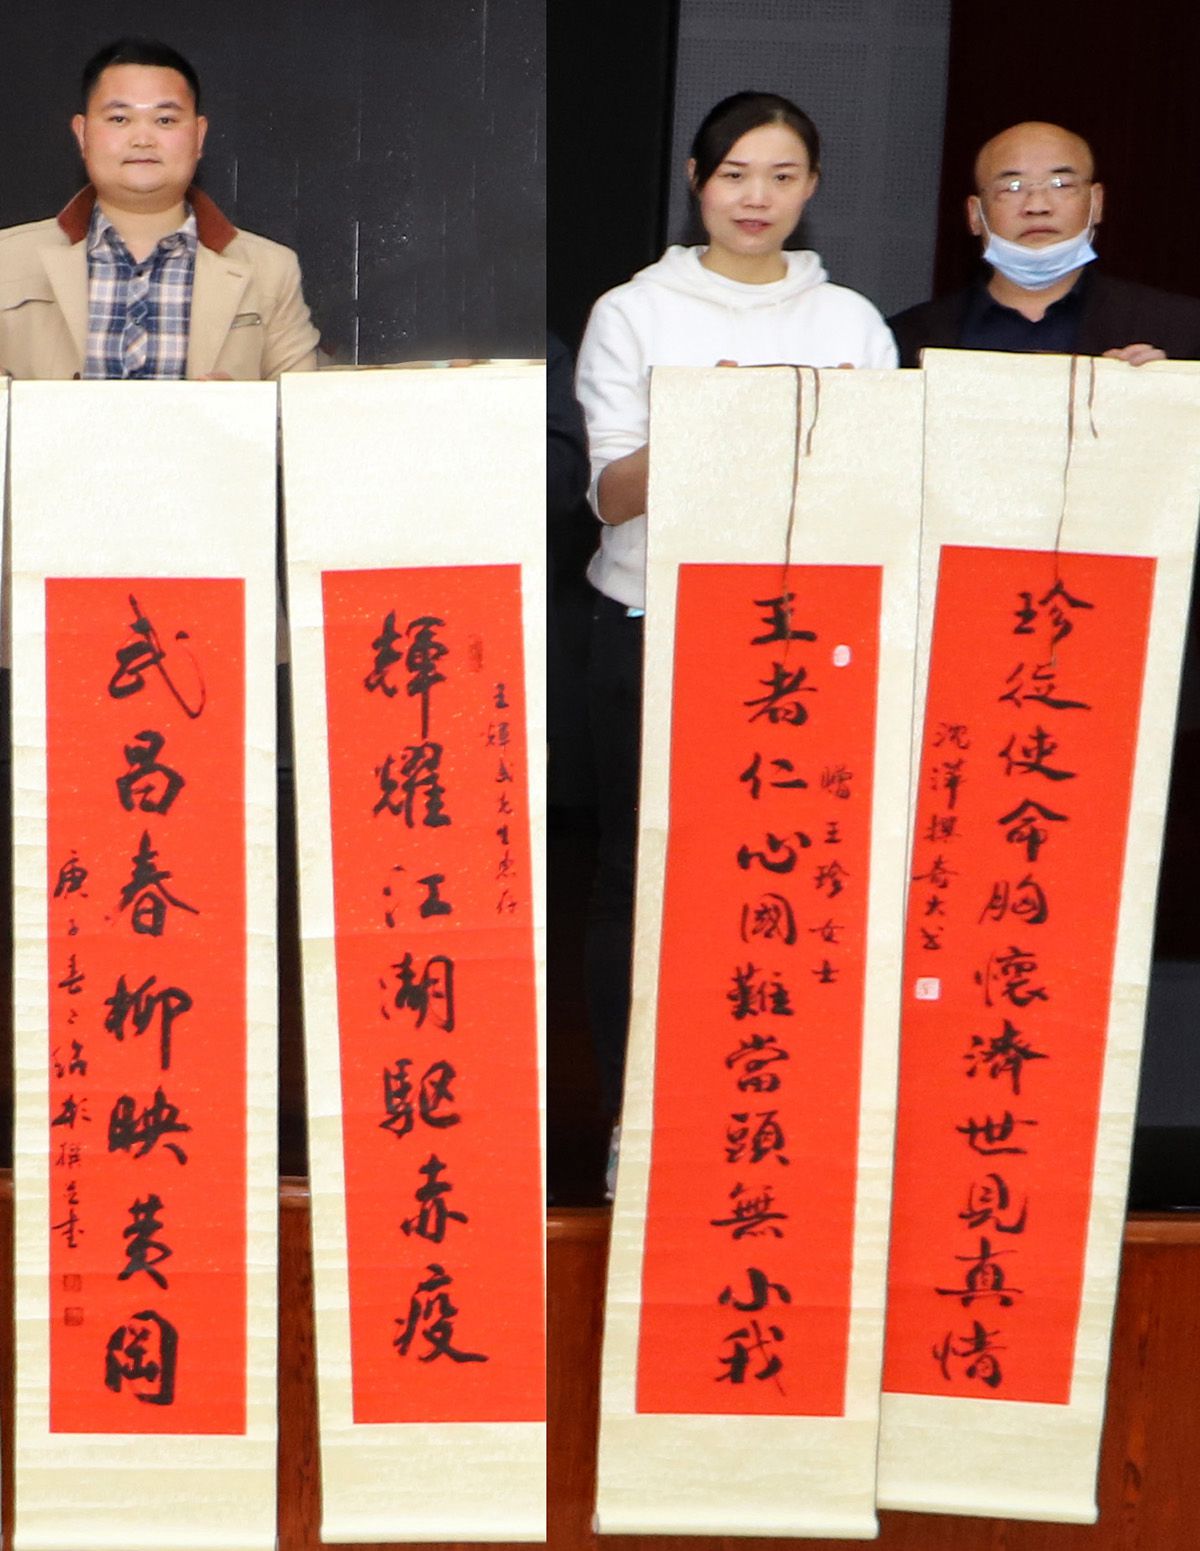 輝耀江湖驅赤疫
王輝武先生惠存
武昌春柳映黃岡
庚子春
撰並書
王者仁心國難當頭無小我
贈王珍女士
珍從使命胸懷濟世見真情
沈洋撰奇大書